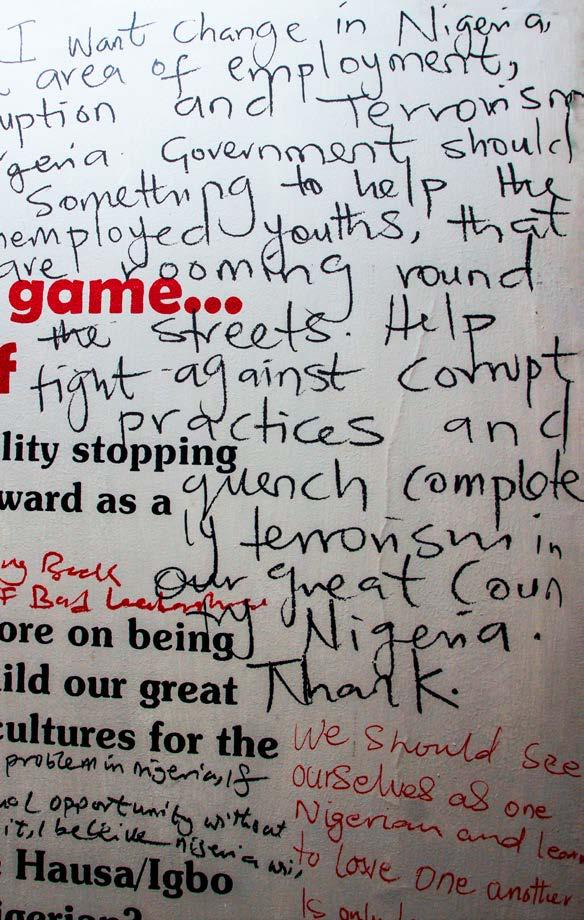 I want change in Nigeria,
area of employment,
uption and Terrorism
geria. Government should
Something to help the
nemployed youths, that
are rooming round
game...
the streets. Help
f
fight against corrupt
practices and
lity stopping
quench complete
ward as a
ly terrorism in
ng Back
our great Coun
F Bad
try Nigeria.
ore on being
Thank.
ild our great
cultures for the
We should see
problem in nigeria, If
ourselves as one
opportunity without
Nigerian and learn
it, I believe nigeria wi,
to love one another
Hausa/Igbo
Is only
igerian?